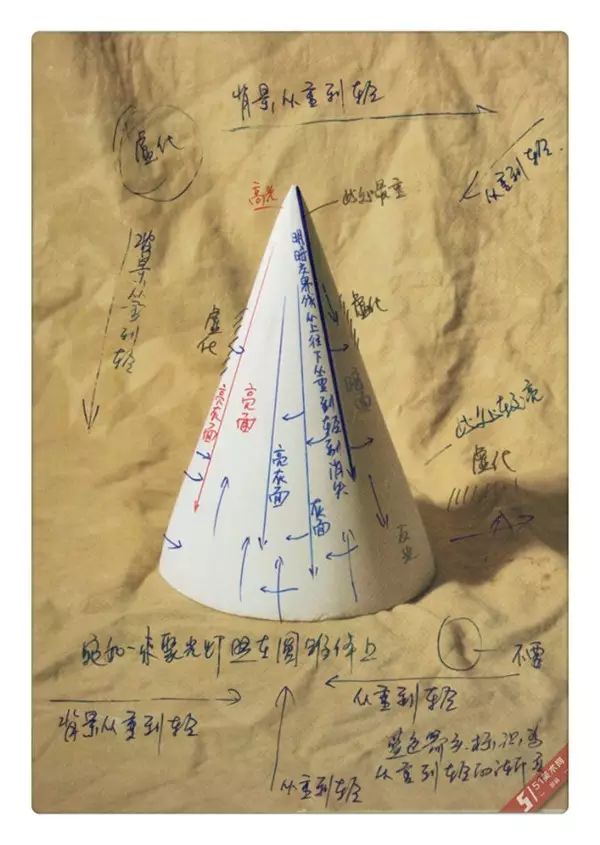 背景从重到轻
虚化
从重到轻.
高光
此处最重
背景从重到轻
虚化
虚化
明暗交界线从上往下从重到轻到消失
亮灰面
亮面
暗面
此处较亮
虚化
亮灰面
灰面
反光
宛如一束聚光灯照在圆锥体上
不要
从重到轻
背景从重到轻
从重到轻
蓝色箭头标识为
从重到轻的渐变
51美术网